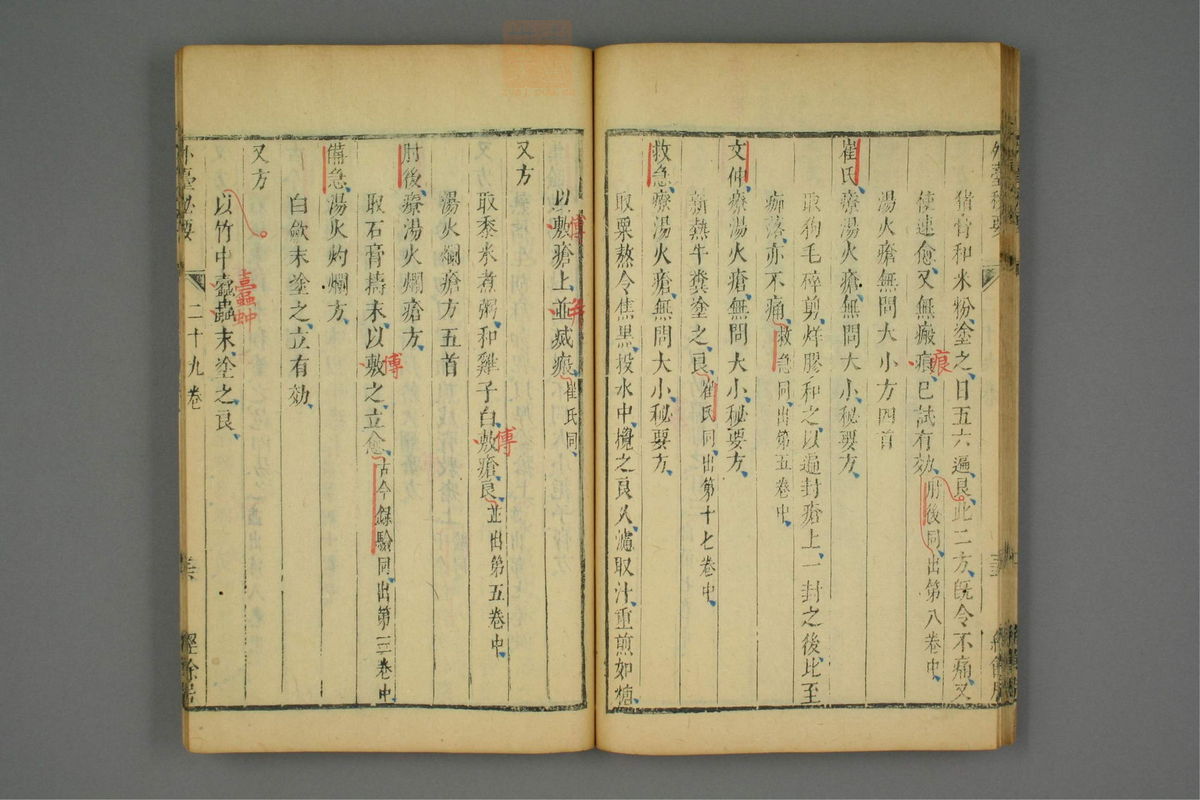 猪膏和米粉塗之日五六遍良此二方既令不痛又
使速愈又無瘢痕已試有効肘後同出第八卷中
痕
湯火瘡無問大小方四首
崔氏療湯火瘡無問大小秘要方
取狗毛碎剪烊膠和之以遍封瘡上一封之後比至
痂落亦不痛救急同出第五卷中
文仲療湯火瘡無問大小秘要方
新熱牛糞塗之良崔氏同出第十七卷中
救急療湯火瘡無問大小秘要方
取粟熬令焦黑投水中攪之良久濾取汁重煎如糖
以敷瘡上並滅瘢崔氏同
傅
又方
取黍米煮粥和雞子白敷瘡良並出第五卷中
傅
湯火爛瘡方五首
肘後療湯火爛瘡方
取石膏擣末以敷之立愈古今錄驗同出第三卷中
傅
備急湯火灼爛方
白斂末塗之立有効
又方
以竹中蠹蟲末塗之良
外臺秘要
二十九卷
經餘居